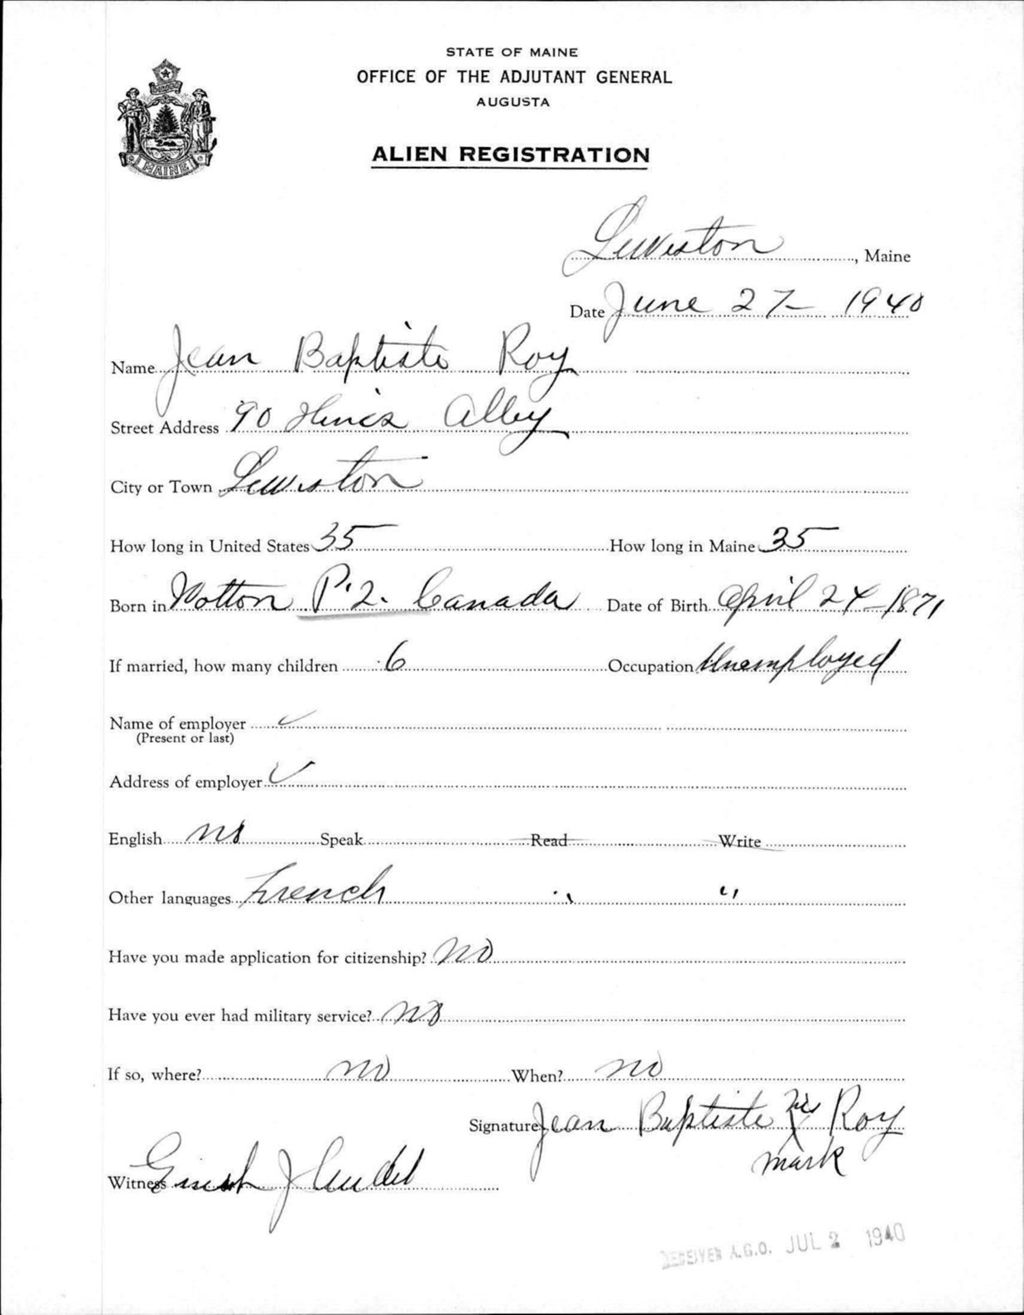 STATE OF MAINE
OFFICE OF THE ADJUTANT GENERAL
AUGUSTA
ALIEN REGISTRATION
MAINE
Lewiston, Maine
Date June 27 - 1940
Name Jean Baptiste Roy
Street Address 90 Hines Alley
City or Town Lewiston
How long in United States 35 How long in Maine 35
Born in Wotton P.Q. Canada Date of Birth April 24 - 1871
If married, how many children 6 Occupation Unemployed
Name of employer ✓
(Present or last)
Address of employer ✓
English no Speak Read Write
Other languages French " "
Have you made application for citizenship? NO
Have you ever had military service? NO
If so, where? NO When? NO
Signature Jean Baptiste his X Roy
mark
Witness
RECEIVED A.G.O. JUL 2 1940